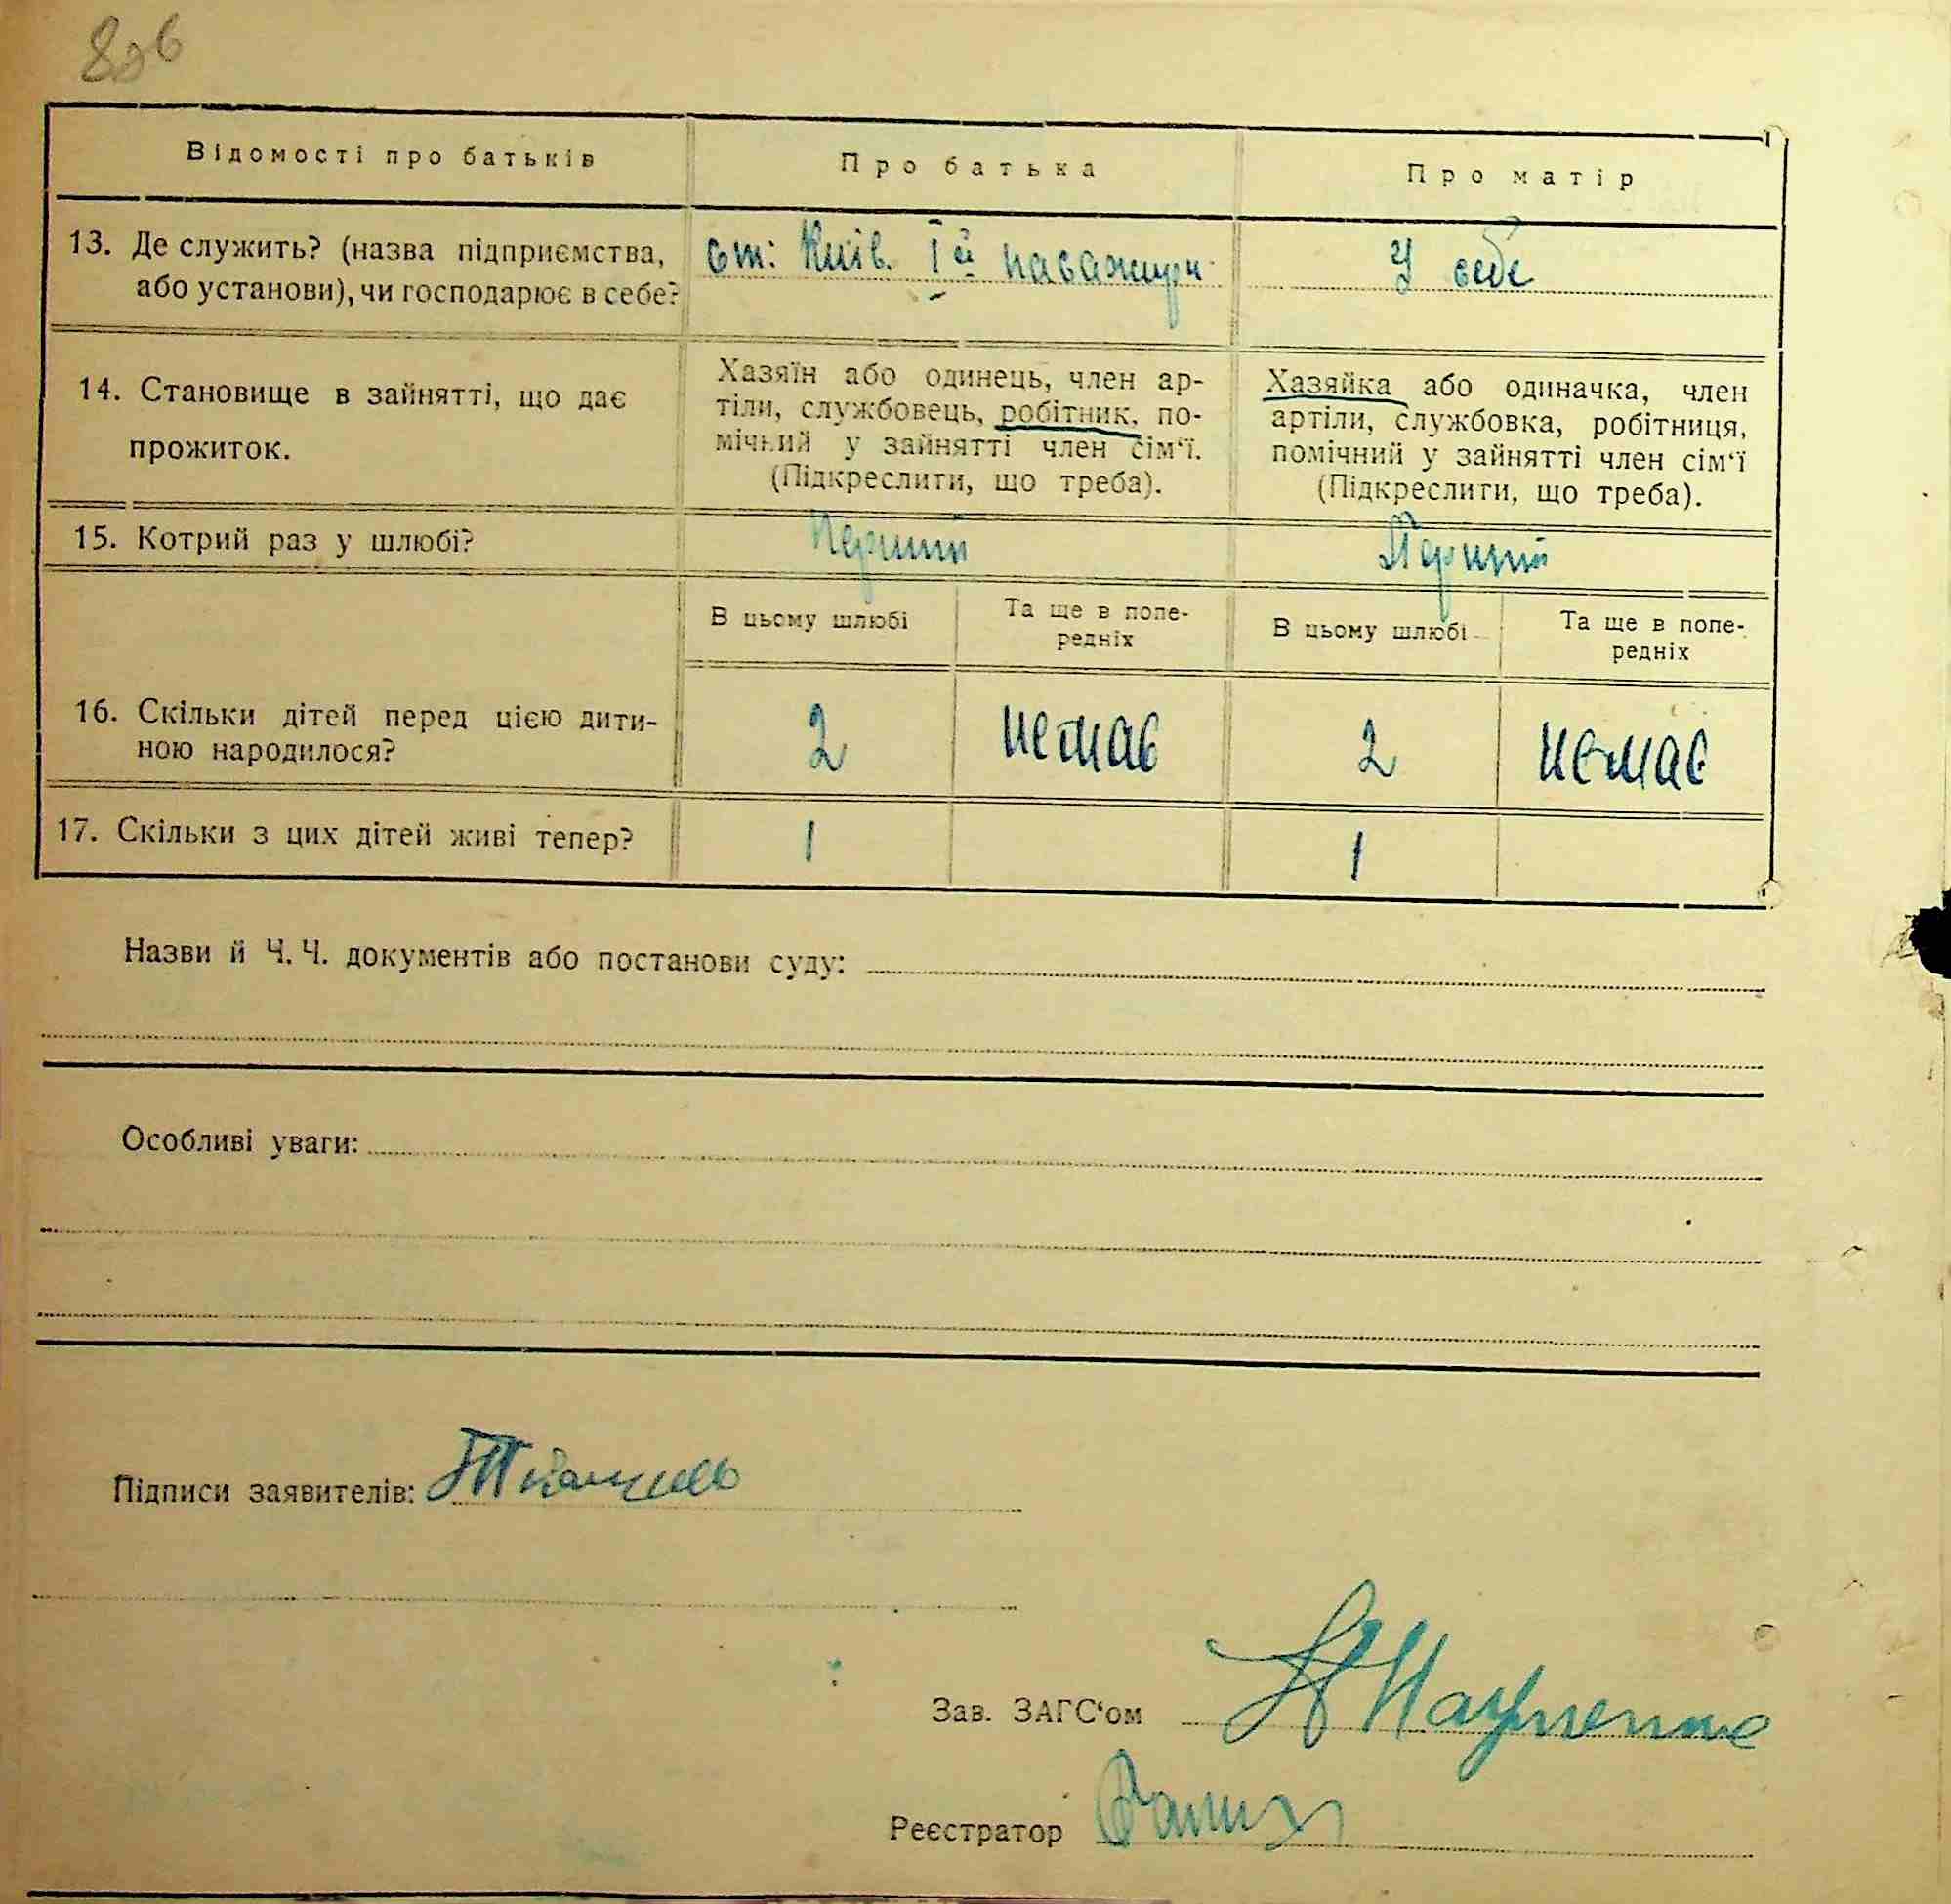 Відомості про батьків
Про батька
Про матір
13. Де служить? (назва підприємства,
або установи), чи господарює в себе?
ст: Київ. Iй пасажирн
У себе
14. Становище в зайнятті, що дає
прожиток.
Хазяїн або одинець, член ар-
тіли, службовець, робітник, по-
мічний у зайнятті член сім‘ї.
(Підкреслити, що треба).
Хазяйка або одиначка, член
артіли, службовка, робітниця,
помічний у зайнятті член сім‘ї
(Підкреслити, що треба).
15. Котрий раз у шлюбі?
Перший
Перший
В цьому шлюбі
Та ще в попе-
редніх
В цьому шлюбі
Та ще в попе-
редніх
16. Скільки дітей перед цією дити-
ною народилося?
2
немає
2
немає
17. Скільки з цих дітей живі тепер?
1
1
Назви й Ч. Ч. документів або постанови суду:
Особливі уваги:
Підписи заявителів:
Зав. ЗАГС‘ом
Реєстратор